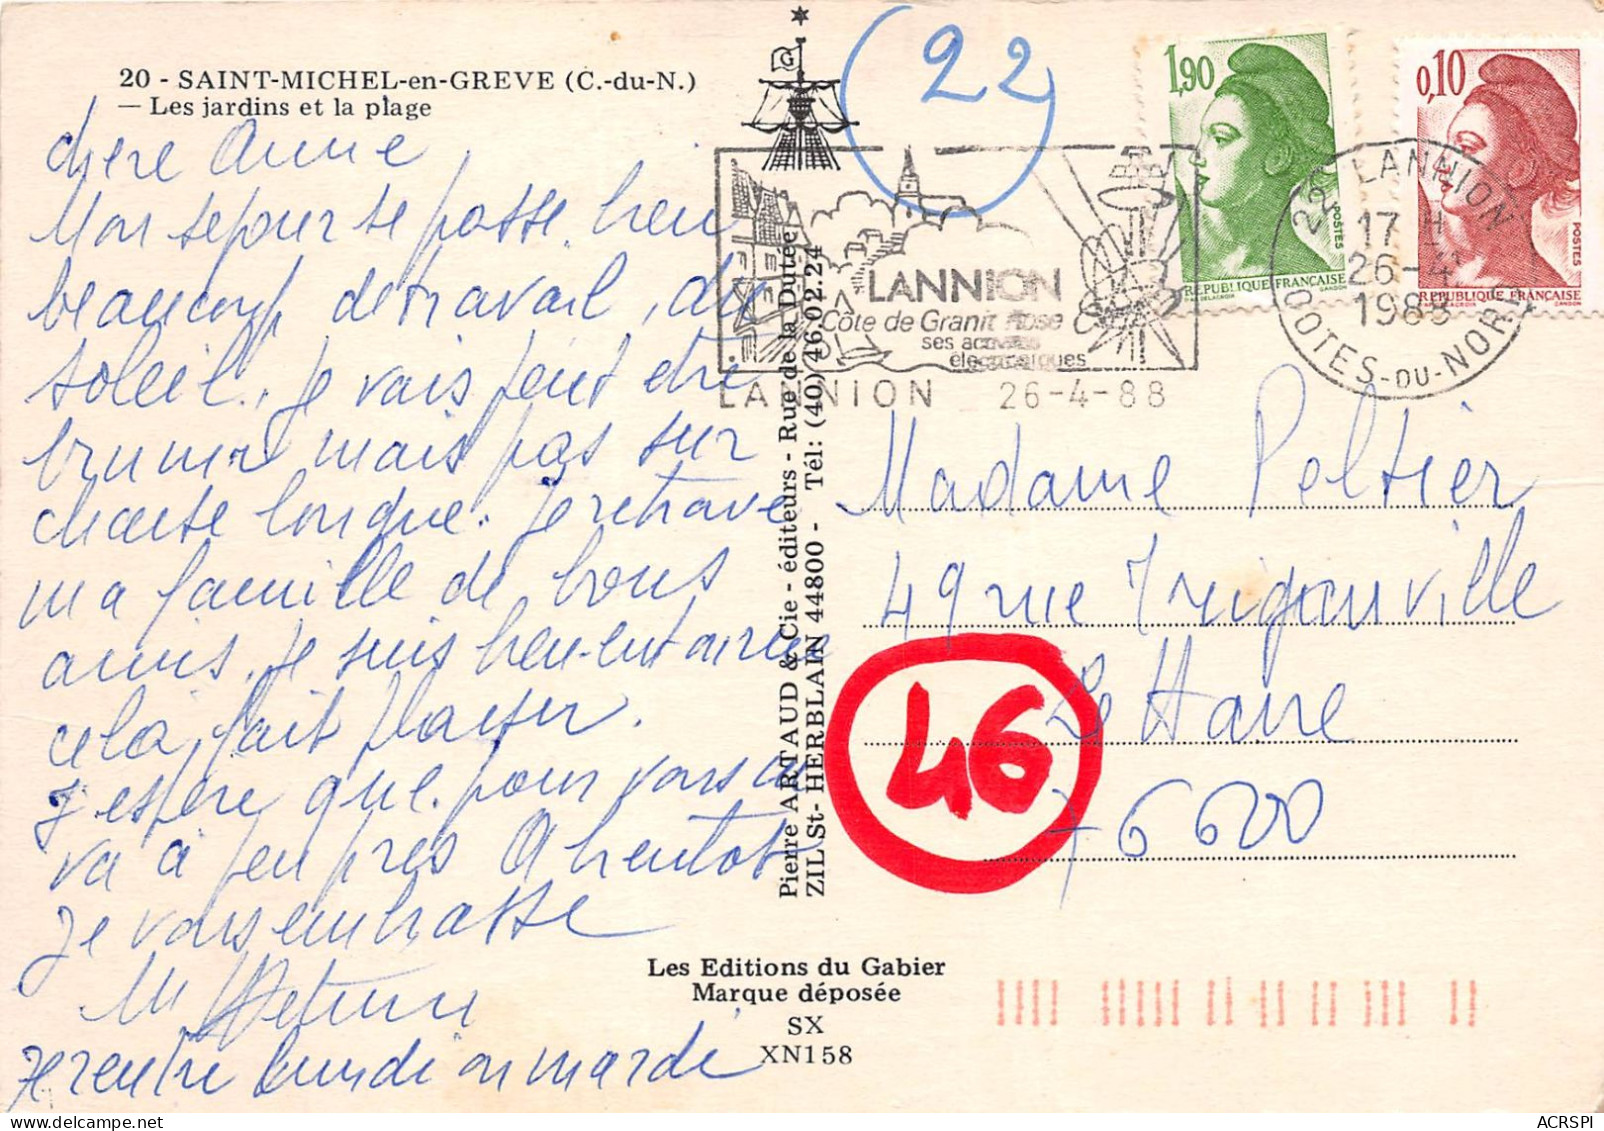 20 - SAINT-MICHEL-en-GREVE (C.-du-N.)
— Les jardins et la plage
chere Anne
Mon sejour se passe bien
beaucoup de travail, du
soleil. Je vais peut etre
brunir mais pas sur
chaise longue. Je retrouve
ma famille de bons
amis, je suis bien entourée
cela fait plaisir.
J'espère que pour vous ca
va à peu près A bientot
Je vous embrasse
Je rentre lundi ou mardi
Pierre ARTAUD & Cie - éditeurs - Rue de la Dutée
ZIL St-HERBLAIN 44800 - Tél: (40) 46.02.24
Les Editions du Gabier
Marque déposée
SX
XN158
G
22
LANNION
Côte de Granit Rose
ses activités
électroniques
LANNION 26-4-88
1,90
POSTES
REPUBLIQUE FRANÇAISE
0,10
POSTES
REPUBLIQUE FRANÇAISE
22 LANNION
17 H
26-4
1988
COTES-DU-NORD
Madame Peltier
49 rue Trigauville
Le Havre
76600
46
ACRSPI